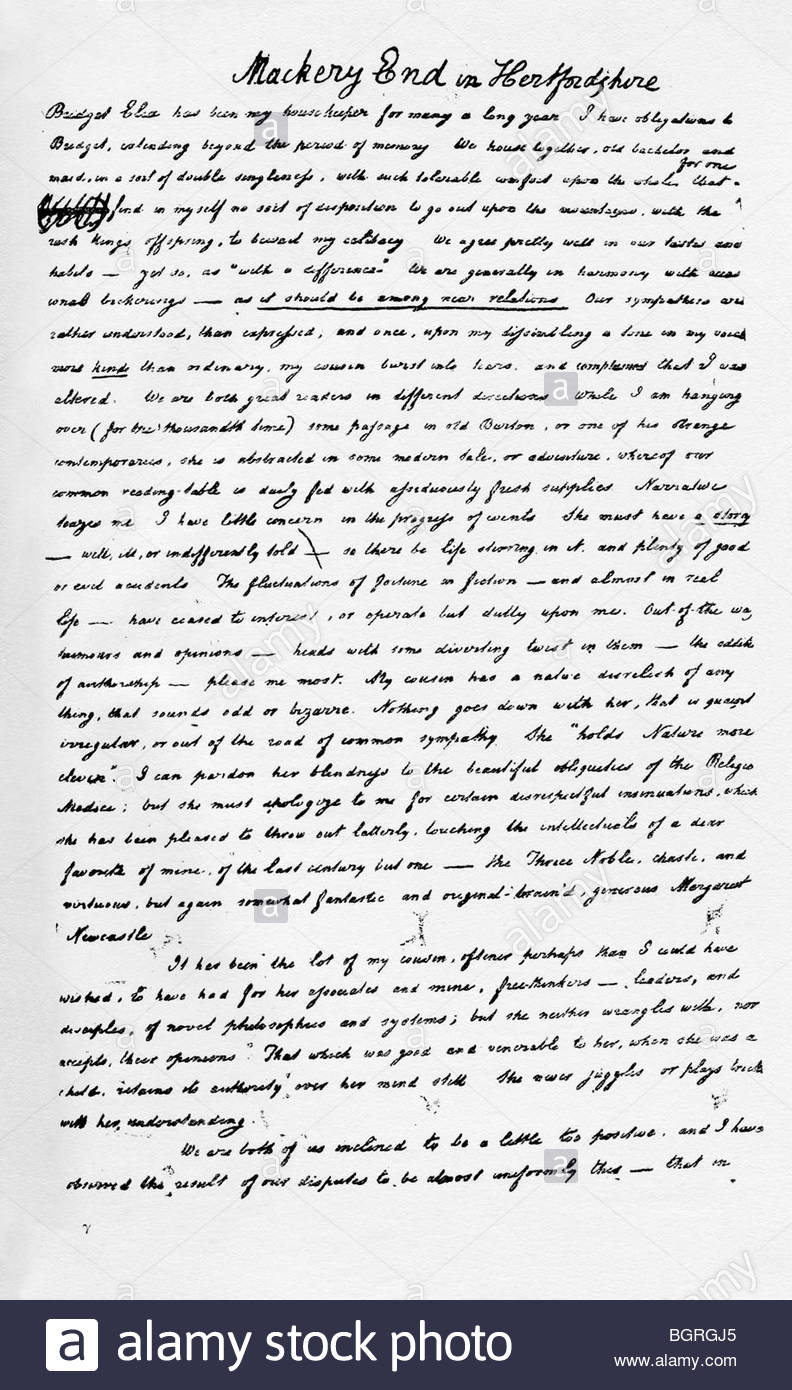 Mackery End in Hertfordshire
Bridget Elia has been my housekeeper for many a long year I have obligations to
Bridget, extending beyond the period of memory We house together, old bachelor and
for one
maid, in a sort of double singleness, with such tolerable comfort upon the whole that
find in myself no sort of disposition to go out upon the mountains, with the
rash kings offspring, to bewail my celibacy We agree pretty well in our tastes and
habits — yet so, as "with a difference" We are generally in harmony with occa
sional bickerings — as it should be among near relations Our sympathies are
rather understood, than expressed; and once, upon my dissembling a tone in my voice
more kinde than ordinary, my cousin burst into tears, and complained that I was
altered. We are both great readers in different directions While I am hanging
over (for the thousandth time) some passage in old Burton, or one of his strange
contemporaries, she is abstracted in some modern tale, or adventure, whereof our
common reading-table is daily fed with assiduously fresh supplies Narrative
teazes me I have little concern in the progress of events She must have a story
— well, ill, or indifferently told — so there be life stirring in it, and plenty of good
or evil accidents The fluctuations of fortune in fiction — and almost in real
life — have ceased to interest, or operate but dully upon me. Out-of-the way
humours and opinions — heads with some diverting twist in them — the oddities
of authorship — please me most. My cousin has a native disrelish of any
thing, that sounds odd or bizarre. Nothing goes down with her, that is quaint
irregular, or out of the road of common sympathy She "holds Nature more
clever" I can pardon her blindness to the beautiful obliquities of the Religio
Medici; but she must apologize to me for certain disrespectful insinuations, which
she has been pleased to throw out latterly, touching the intellectuals of a dear
favorite of mine, of the last century but one — the Thrice Noble, chaste, and
virtuous, but again somewhat fantastic and original-brain'd, generous Margaret
Newcastle
It has been the lot of my cousin, oftener perhaps than I could have
wished, to have had for her associates and mine, free-thinkers — leaders, and
disciples, of novel philosophies and systems; but she neither wrangles with, nor
accepts, their opinions That which was good and venerable to her, when she was a
child, retains its authority over her mind still She never juggles or plays tricks
with her understanding.
We are both of us inclined to be a little too positive, and I have
observed the result of our disputes to be almost uniformly this — that in
a alamy stock photo
BGRGJ5
www.alamy.com